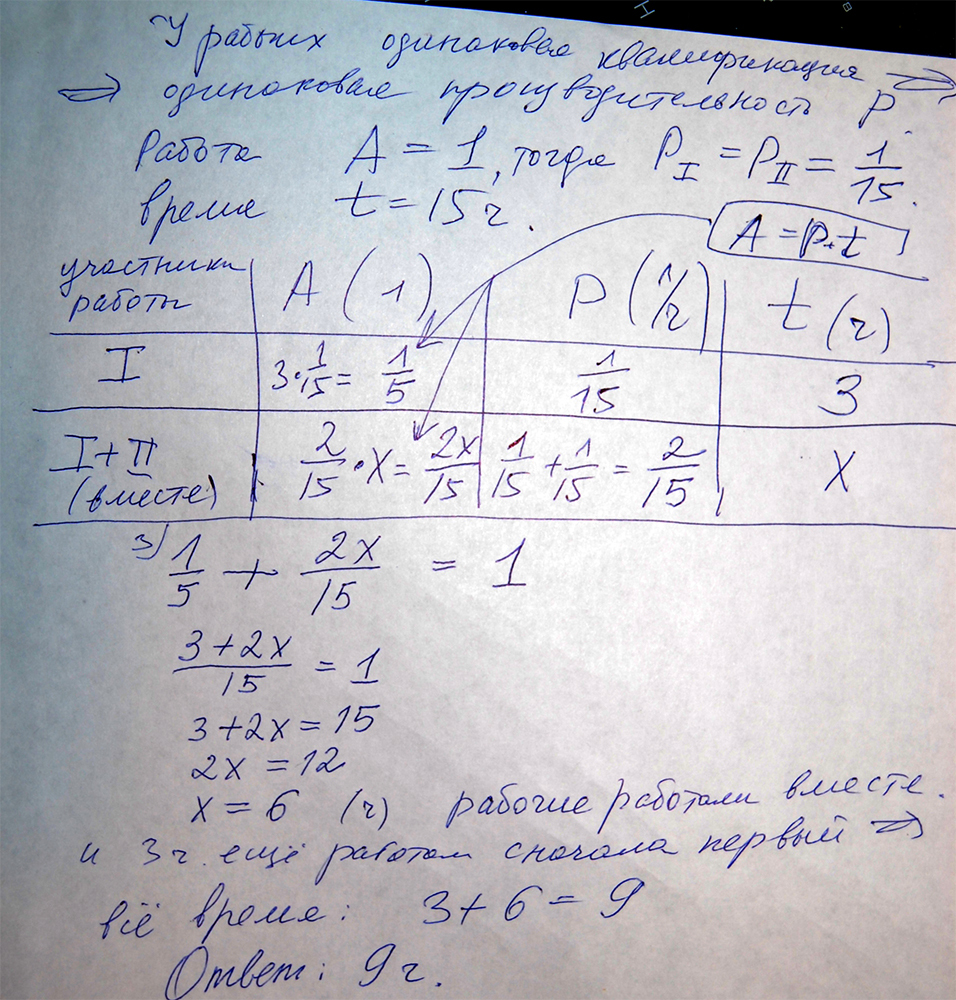 У рабочих одинаковая квалификация ⇒
⇒ одинаковая производительность P.
Работа A = 1, тогда P_I = P_II = 1/15.
время t = 15 ч.
A = p·t
участники работы | A (1) | P (1/ч) | t (ч)
I | 3·1/15 = 1/5 | 1/15 | 3
I + II (вместе) | 2/15·x = 2x/15 | 1/15 + 1/15 = 2/15 | x
3) 1/5 + 2x/15 = 1
(3+2x)/15 = 1
3+2x = 15
2x = 12
x = 6 (ч) рабочие работали вместе.
и 3 ч. ещё работал сначала первый ⇒
всё время: 3+6 = 9
Ответ: 9 ч.